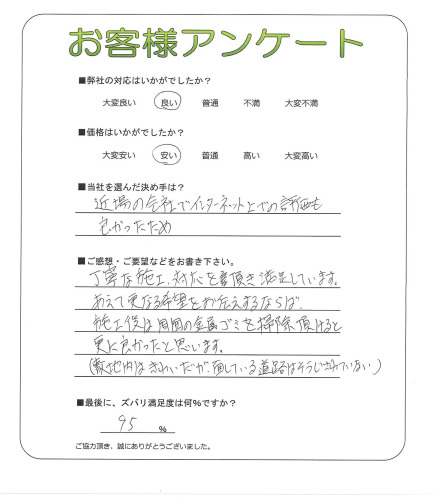 お客様アンケート
■弊社の対応はいかがでしたか？
大変良い 良い 普通 不満 大変不満
■価格はいかがでしたか？
大変安い 安い 普通 高い 大変高い
■当社を選んだ決め手は？
近場の会社でインターネット上での評価も
良かったため
■ご感想・ご要望などをお書き下さい。
丁寧な施工、対応を頂き満足しています。
あえて更なる希望をお伝えするならば、
施工後は周囲の金属ゴミを掃除頂けると
更に良かったと思います。
(敷地内はきれいだが、面している道路はそうじされていない)
■最後に、ズバリ満足度は何％ですか？
95 ％
ご協力頂き、誠にありがとうございました。